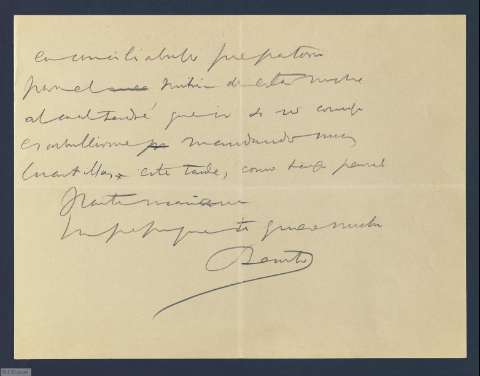 en conciliabulo preparatorio
para el mitin de esta noche
al cual tendré que ir si no consigo
escabullirme mandando unas
cuartillas este tarde, como tengo para el
Hasta mañana
te quiere mucho
Benito